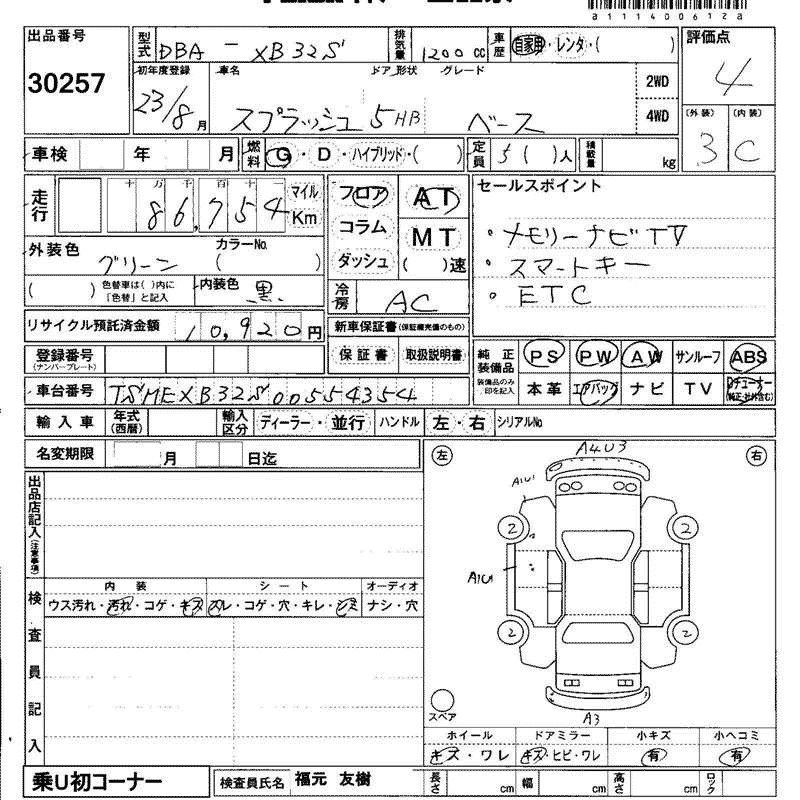 a1114006128
出品番号 型式 DBA - XB32S 排気量 1200 CC 車歴 自家用・レンタ・( ) 評価点
30257 初年度登録 車名 ドア 形状 グレード 2WD 4
23/8月 スプラッシュ 5 HB ベース 4WD (外装) (内装)
車検 年 月 燃料 G・D・ハイブリッド・( ) 定員 5( )人 積載量 kg 3 C
走行 十 万 千 百 十 一 マイル フロア AT セールスポイント
86,754 Km コラム MT ・メモリーナビTV
外装色 グリーン カラーNo. ( ) ダッシュ ( )速 ・スマートキー
( ) 色替車は( )内に「色替」と記入 内装色 黒 冷房 AC ・ETC
リサイクル預託済金額 10,920円 新車保証書(保証継続完備のもの)
登録番号 (ナンバープレート) 保証書 取扱説明書 純正装備品 PS PW AW サンルーフ ABS
車台番号 TSMEXB32S00554354 装備品のみ印を記入 本革 エアバッグ ナビ TV
輸入車 年式(西暦) 輸入区分 ディーラー・並行 ハンドル 左・右 シリアルNo.
名変期限 月 日迄 左 右
出品店記入(注意事項) A4U3
A1U1
2 2
A1U1
内装 シート オーディオ
ウス汚れ・汚れ・コゲ・キズ ズレ・コゲ・穴・キレ・シミ ナシ・穴
検査員記入 2 2
スペア A3
ホイール ドアミラー 小キズ 小ヘコミ
キズ・ワレ キズ・ヒビ・ワレ 有 有
乗U初コーナー 検査員氏名 福元 友樹 長さ cm 幅 cm 高さ cm ロック